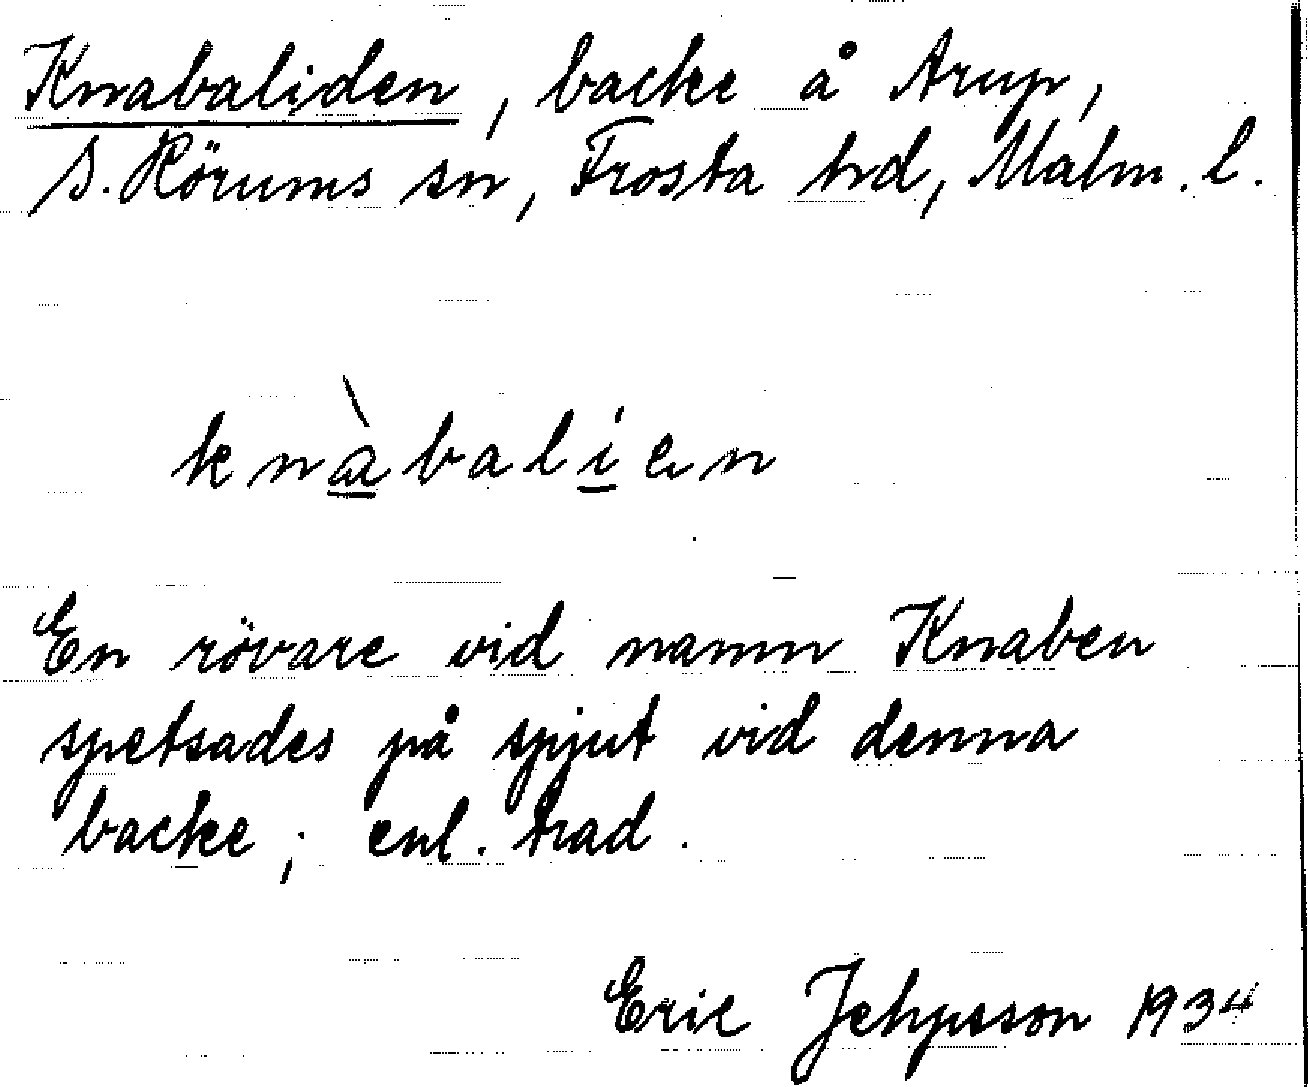 Knabaliden, backe å Arup,
S. Rörums sn, Frosta hd, Malm. l.
knàbalien
En rövare vid namn Knaben
spetsades på spjut vid denna
backe; enl. trad.
Eric 1934